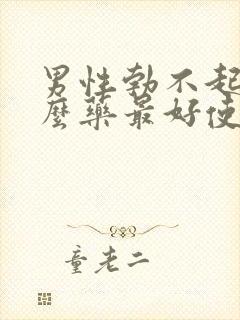 男性勃不起
麼藥最好使
童老二